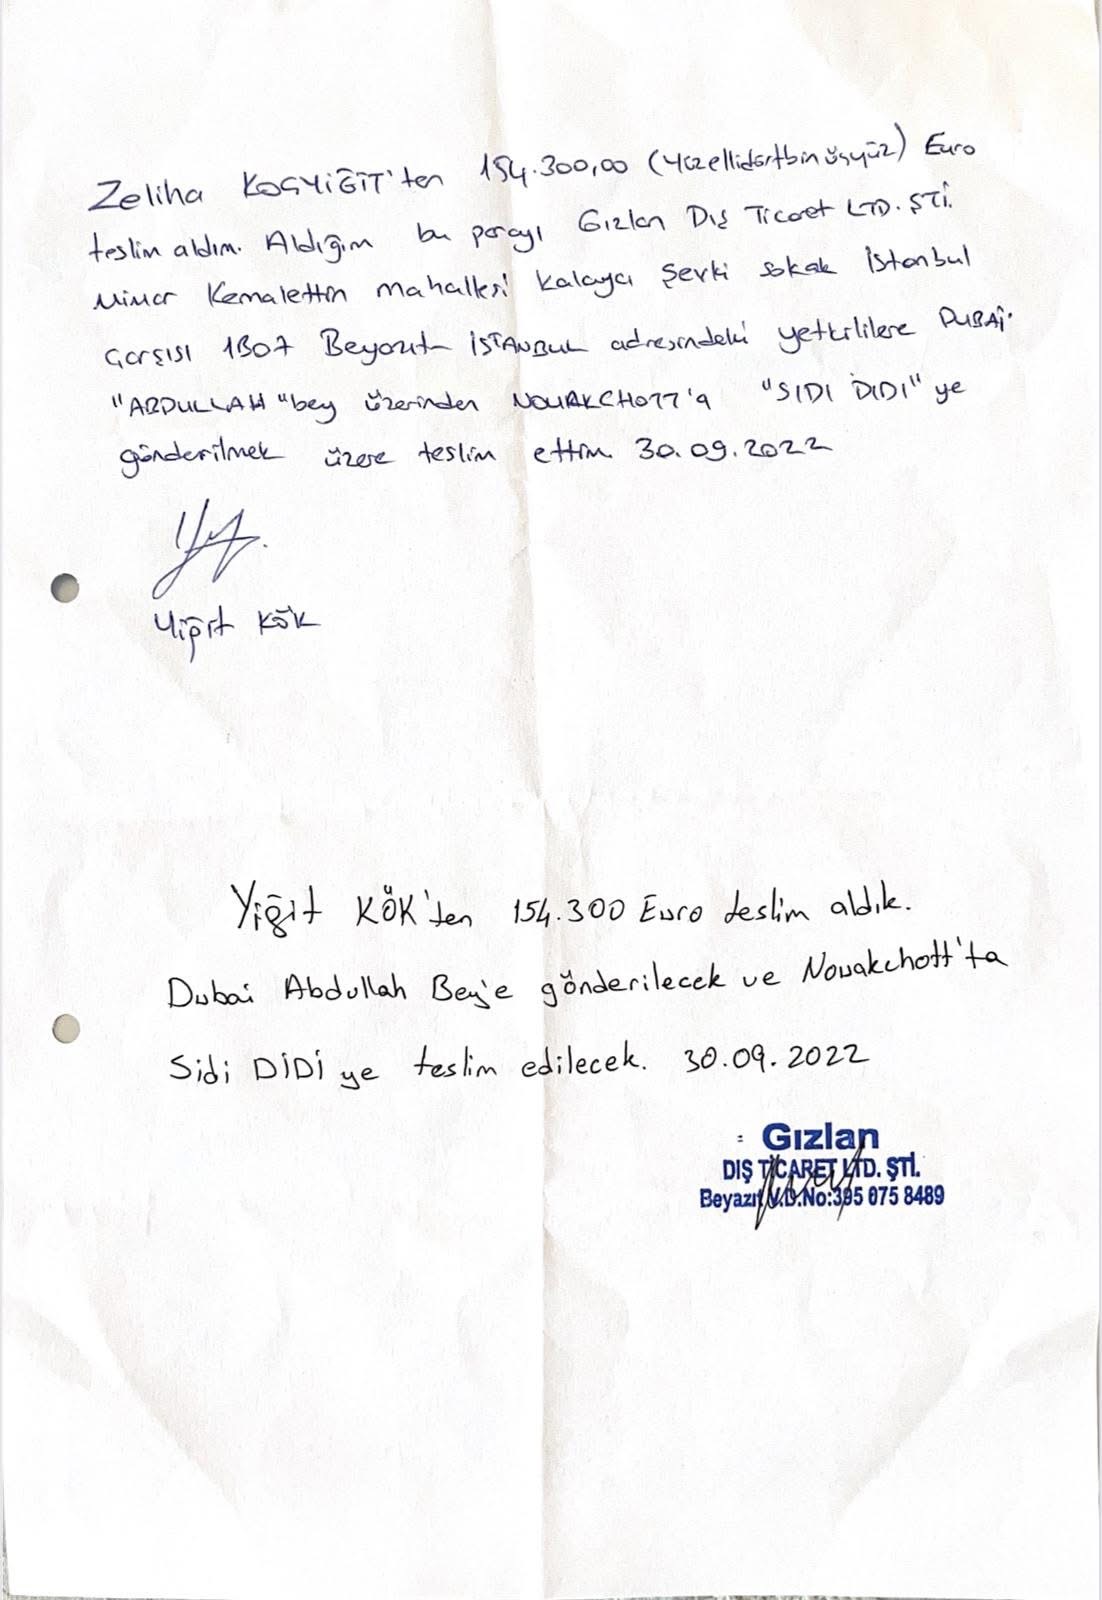 Zeliha KOÇYİĞİT'ten 154.300,00 (yüzellidörtbinüçyüz) Euro
teslim aldım. Aldığım bu parayı Gızlan Dış Ticaret LTD. ŞTİ.
Mimar Kemalettin mahallesi Kalaycı Şevki sokak İstanbul
Çarşısı 1B07 Beyazıt İSTANBUL adresindeki yetkililere DUBAİ
"ABDULLAH" bey üzerinden NOUAKCHOTT'a "SIDI DIDI" ye
gönderilmek üzere teslim ettim. 30.09.2022
Yiğit KÖK
Yiğit KÖK'ten 154.300 Euro teslim aldık.
Dubai Abdullah Bey'e gönderilecek ve Nouakchott'ta
Sidi DİDİ ye teslim edilecek. 30.09.2022
Gızlan
DIŞ TİCARET LTD. ŞTİ.
Beyazıt V.D.No:395 075 8489